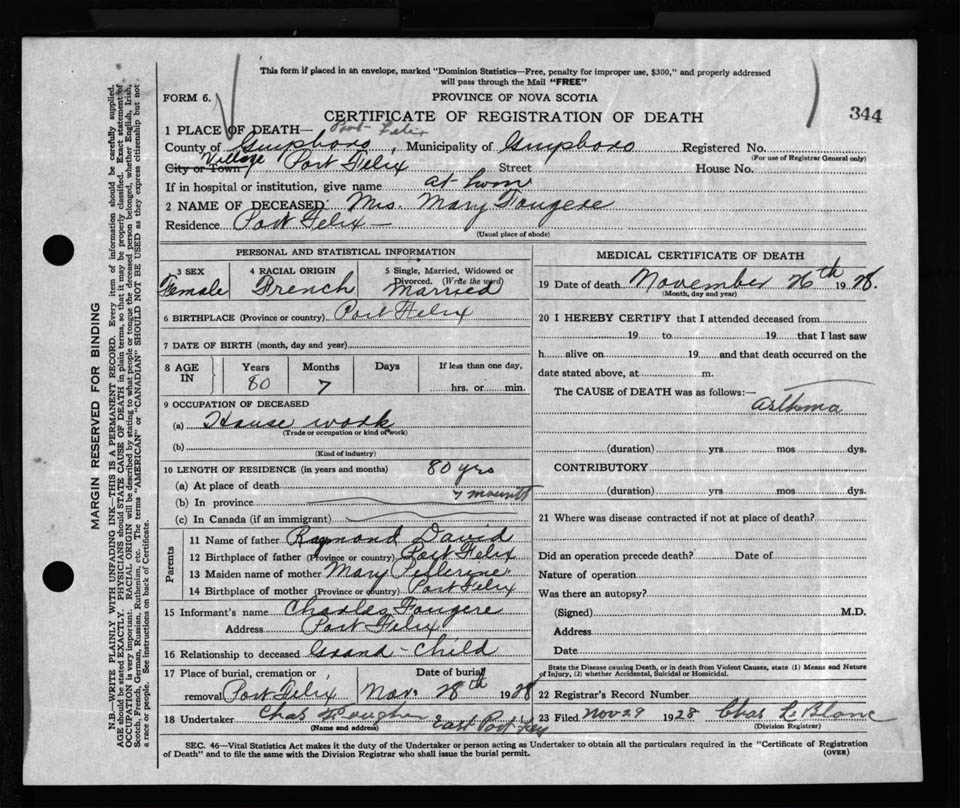 This form if placed in an envelope, marked "Dominion Statistics—Free, penalty for improper use, $300," and properly addressed
will pass through the Mail "FREE"
FORM 6.
PROVINCE OF NOVA SCOTIA
CERTIFICATE OF REGISTRATION OF DEATH
344
1 PLACE OF DEATH— Port Felix
County of Guysboro, Municipality of Guysboro Registered No.
(For use of Registrar General only)
City or Town Village Port Felix Street House No.
If in hospital or institution, give name at hom
2 NAME OF DECEASED Mrs. Mary Fougere
Residence Port Felix
(Usual place of abode)
PERSONAL AND STATISTICAL INFORMATION
3 SEX
Female
4 RACIAL ORIGIN
French
5 Single, Married, Widowed or
Divorced. (Write the word)
Married
6 BIRTHPLACE (Province or country) Port Felix
7 DATE OF BIRTH (month, day and year)
8 AGE IN
Years Months Days If less than one day,
80 7 hrs. or min.
9 OCCUPATION OF DECEASED
(a) House work
(Trade or occupation or kind of work)
(b)
(Kind of industry)
10 LENGTH OF RESIDENCE (in years and months) 80 yrs
(a) At place of death
7 mounts
(b) In province
(c) In Canada (if an immigrant)
Parents
11 Name of father Raymond David
12 Birthplace of father (Province or country) Port Felix
13 Maiden name of mother Mary Pellerine
14 Birthplace of mother (Province or country) Port Felix
15 Informant's name Charles Fougere
Address Port Felix
16 Relationship to deceased Grand-child
17 Place of burial, cremation or Date of burial
removal Port Felix Nov. 28th 1928
18 Undertaker Chas East Port Felix
(Name and address)
MEDICAL CERTIFICATE OF DEATH
19 Date of death November 26th 1928.
(Month, day and year)
20 I HEREBY CERTIFY that I attended deceased from
19 to 19 that I last saw
h alive on 19 and that death occurred on the
date stated above, at m.
The CAUSE OF DEATH was as follows:—
asthma
(duration) yrs mos dys.
CONTRIBUTORY
(duration) yrs mos dys.
21 Where was disease contracted if not at place of death?
Did an operation precede death? Date of
Nature of operation
Was there an autopsy?
(Signed) M.D.
Address
Date
State the Disease causing Death, or in death from Violent Causes, state (1) Means and Nature
of Injury, (2) whether Accidental, Suicidal or Homicidal.
22 Registrar's Record Number
23 Filed Nov 29 1928 Chas LeBlanc
(Division Registrar)
SEC. 46—Vital Statistics Act makes it the duty of the Undertaker or person acting as Undertaker to obtain all the particulars required in the "Certificate of Registration
of Death" and to file the same with the Division Registrar who shall issue the burial permit.
(OVER)
MARGIN RESERVED FOR BINDING
N.B.—WRITE PLAINLY WITH UNFADING INK—THIS IS A PERMANENT RECORD. Every item of information should be carefully supplied.
AGE should be stated EXACTLY. PHYSICIANS should STATE CAUSE OF DEATH in plain terms, so that it may be properly classified. Exact statement of
OCCUPATION is very important. RACIAL ORIGIN will be described by stating to what people or tongue the deceased person belonged, whether English, Irish,
Scotch, French, German, Russian, Ruthenian, etc. The terms "AMERICAN" or "CANADIAN" SHOULD NOT BE USED as they express citizenship but not
a race or people. See instructions on back of Certificate.